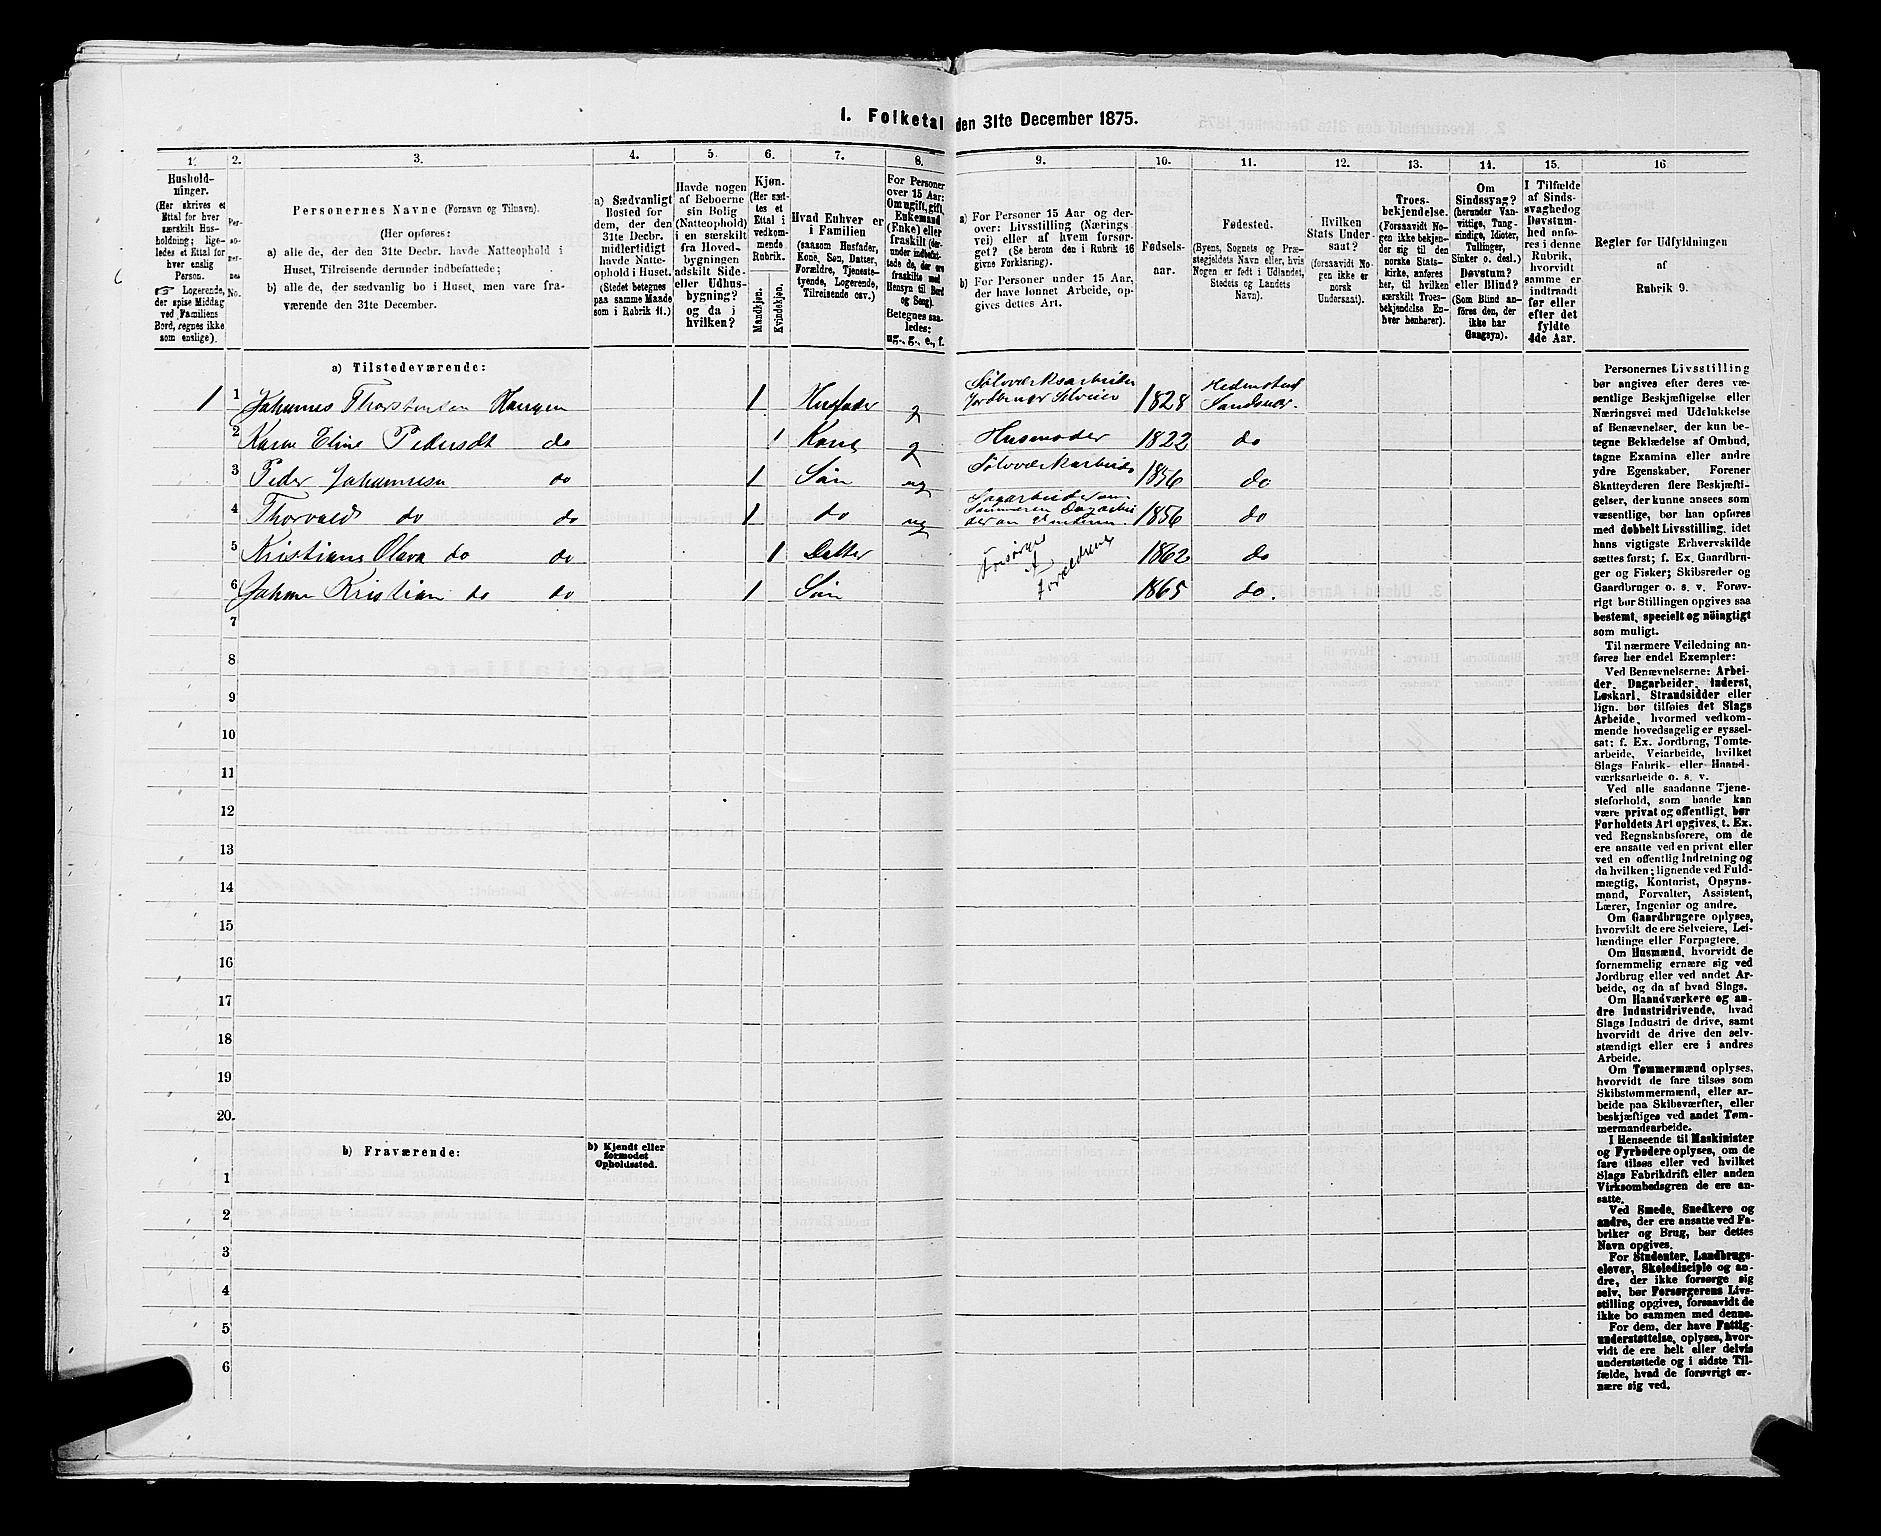 1. Folketal den 31te December 1875.
1. 2. 3. 4. 5. 6. 7. 8. 9. 10. 11. 12. 13. 14. 15. 16
Hushold-
ninger.
(Her skrives et
Ettal for hver
særskilt Hus-
holdning; lige-
ledes et Ettal for
hver enslig
Person.
☞ Logerende,
der spise Middag
ved Familiens
Bord, regnes ikke
som enslige).
Per-
so-
ner-
nes
No.
Personernes Navne (Fornavn og Tilnavn).
(Her opføres:
a) alle de, der den 31te Decbr. havde Natteophold i
Huset, Tilreisende derunder indbefattede;
b) alle de, der sædvanlig bo i Huset, men vare fra-
værende den 31te December.
a) Sædvanligt
Bosted for
dem, der den
31te Decbr.
midlertidigt
havde Natte-
ophold i Huset.
(Stedet betegnes
paa samme Maade
som i Rubrik 11.)
Havde nogen
af Beboerne
sin Bolig
(Natteophold)
i en særskilt
fra Hoved-
bygningen
adskilt Side-
eller Udhus-
bygning?
og da i
hvilken?
Kjøn.
(Her sæt-
tes et
Ettal i
vedkom-
mende
Rubrik.
Mandkjøn.
Kvindekjøn.
Hvad Enhver er
i Familien
(saasom Husfader,
Kone, Søn, Datter,
Forældre, Tjeneste-
tyende, Logerende,
Tilreisende osv.)
For Personer
over 15 Aar:
Om ugift, gift,
Enkemand
(Enke) eller
fraskilt (der-
under indbefat-
tede de, der ere
fraskilte med
Hensyn til Bord
og Seng).
Betegnes saa-
ledes:
ug., g., e., f.
a) For Personer 15 Aar og der-
over: Livsstilling (Nærings
vei) eller af hvem forsør-
get? (Se herom den i Rubrik 16
givne Forklaring).
b) For Personer under 15 Aar,
der have lønnet Arbeide, op-
gives dettes Art.
Fødsels-
aar.
Fødested.
(Byens, Sognets og Præ-
stegjeldets Navn eller, hvis
Nogen er født i Udlandet,
Stedets og Landets
Navn).
Hvilken
Stats Under
saat?
(forsaavidt No-
gen ikke er
norsk
Undersaat).
Troes-
bekjendelse.
(Forsaavidt No-
gen ikke bekjen-
der sig til den
norske Stats-
kirke, anføres
her, til hvilken
særskilt Troes-
bekjendelse En-
hver henhører).
Om
Sindssvag?
(herunder Van-
vittige, Tung-
sindige, Idioter,
Tullinger,
Sinker o. desl.)
Døvstum?
eller Blind?
(Som Blind an-
føres den, der
ikke har
Gangsyn).
I Tilfælde
af Sinds-
svaghed og
Døvstum-
hed anfø-
res i denne
Rubrik,
hvorvidt
samme er
indtraadt
før eller
efter det
fyldte
4de Aar.
Regler for Udfyldningen
af
Rubrik 9.
a) Tilstedeværende:
1 1 Johannes Thorstensen Haugen 1 Husfader g Sølvværksarbeider Jordbruger Selveier 1828 Hedenstad Sandsvær.
2 Karen Eline Pedersdt do 1 Kone g Husmoder 1822 do
3 Peder Johannesen do 1 Søn ug Sølvværksarbeider 1856 do
4 Thorvald do do 1 do ug Sagarbeider om Sommeren Dagarbeider om Vinteren. 1856 do
5 Kristiane Olava do do 1 Datter Forsørges af Forældrene 1862 do
6 Johan Kristian do do 1 Søn 1865 do.
7
8
9
10
11
12
13
14
15
16
17
18
19
20.
b) Fraværende:
b) Kjendt eller
formodet
Opholdssted.
1
2
3
4
5
6
Personernes Livsstilling
bør angives efter deres væ-
sentlige Beskjæftigelse eller
Næringsvei med Udelukkelse
af Benævnelser, der kun be-
tegne Beklædelse af Ombud,
tagne Examina eller andre
ydre Egenskaber. Forener
Skatteyderen flere Beskjæfti-
gelser, der kunne ansees som
væsentlige, bør han opføres
med dobbelt Livsstilling, idet
hans vigtigste Erhvervskilde
sættes først; f. Ex. Gaardbru-
ger og Fisker; Skibsreder og
Gaardbruger o. s. v. Forøv-
rigt bør Stillingen opgives saa
bestemt, specielt og nöiagtigt
som muligt.
Til nærmere Veiledning an-
føres her endel Exempler:
Ved Benævnelserne: Arbei-
der, Dagarbeider, Inderst,
Løskarl, Strandsidder eller
lign. bør tilføies det Slags
Arbeide, hvormed vedkom-
mende hovedsagelig er syssel-
sat; f. Ex. Jordbrug, Tomte-
arbeide, Veiarbeide, hvilket
Slags Fabrik- eller Haand-
værksarbeide o. s. v.
Ved alle saadanne Tjene-
steforhold, som baade kan
være privat og offentligt, bør
Forholdets Art opgives, t. Ex.
ved Regnskabsførere, om de
ere ansatte ved en privat eller
ved en offentlig Indretning og
da hvilken; lignende ved Fuld-
mægtig, Kontorist, Opsyns-
mand, Forvalter, Assistent,
Lærer, Ingeniør og andre.
Om Gaardbrugere oplyses,
hvorvidt de ere Selveiere, Lei-
lændinge eller Forpagtere.
Om Husmænd, hvorvidt de
fornemmelig ernære sig ved
Jordbrug eller ved andet Ar-
beide, og da af hvad Slags.
Om Haandværkere og an-
dre Industridrivende, hvad
Slags Industri de drive, samt
hvorvidt de drive den selv-
stændigt eller ere i andres
Arbeide.
Om Tømmermænd oplyses,
hvorvidt de fare tilsøs som
Skibstømmermænd, eller ar-
beide paa Skibsværfter, eller
beskjæftiges ved andet Tøm-
mermandarbeide.
I Henseende til Maskinister
og Fyrbødere oplyses, om de
fare tilsøs eller ved hvilket
Slags Fabrikdrift eller anden
Virksomhedsgren de ere an-
satte.
Ved Smede, Snedkere og
andre, der ere ansatte ved Fa-
briker og Brug, bør dettes
Navn opgives.
For Studenter, Landbrugs-
elever, Skoledisciple og an-
dre, der ikke forsørge sig
selv, bør Forsørgerens Livs-
stilling opgives, forsaavidt de
ikke bo sammen med denne.
For dem, der have Fattig-
understøttelse, oplyses, hvor-
vidt de ere helt eller delvis
understøttede og i sidste Til-
fælde, hvad de forøvrigt er-
nære sig ved.